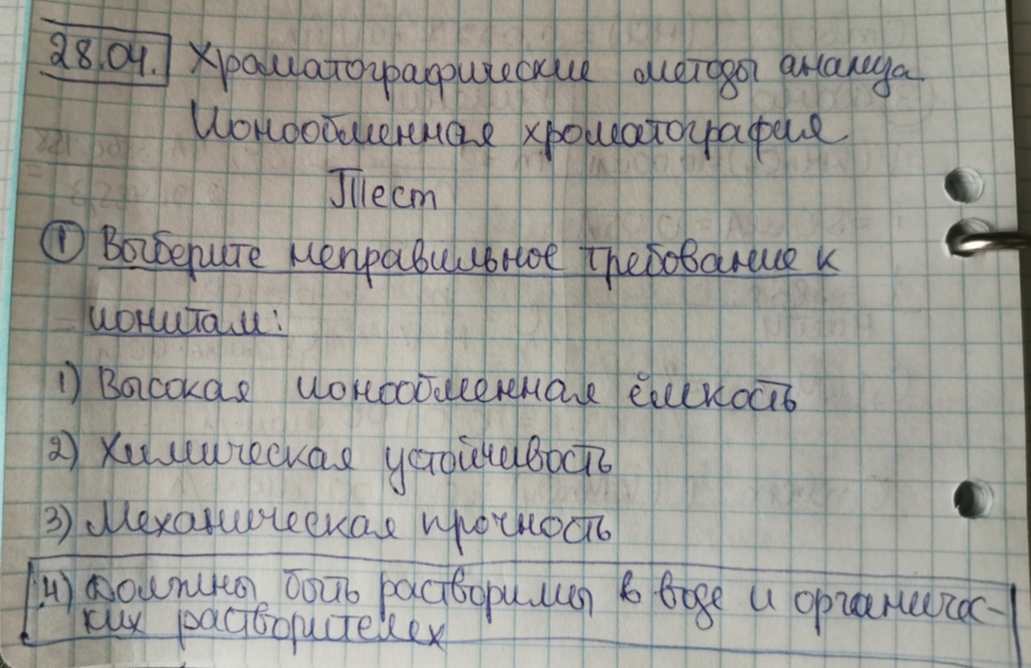 28.04. Хроматографические методы анализа
Ионообменная хроматография
Тест
① Выберите неправильное требование к
ионитам:
1) Высокая ионообменная ёмкость
2) Химическая устойчивость
3) Механическая прочность
4) Должны быть растворимы в воде и органичес-
ких растворителех